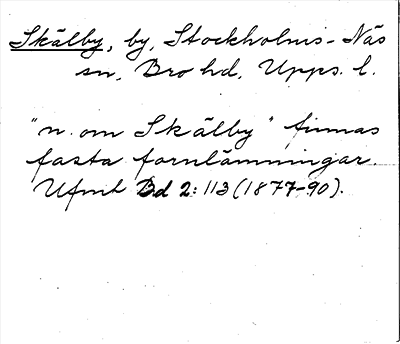 Skälby, by, Stockholms-Näs
sn, Bro hd, Upps. l.
"n. om Skälby" finnas
fasta fornlämningar.
Ufmt Bd 2: 113 (1877-90).